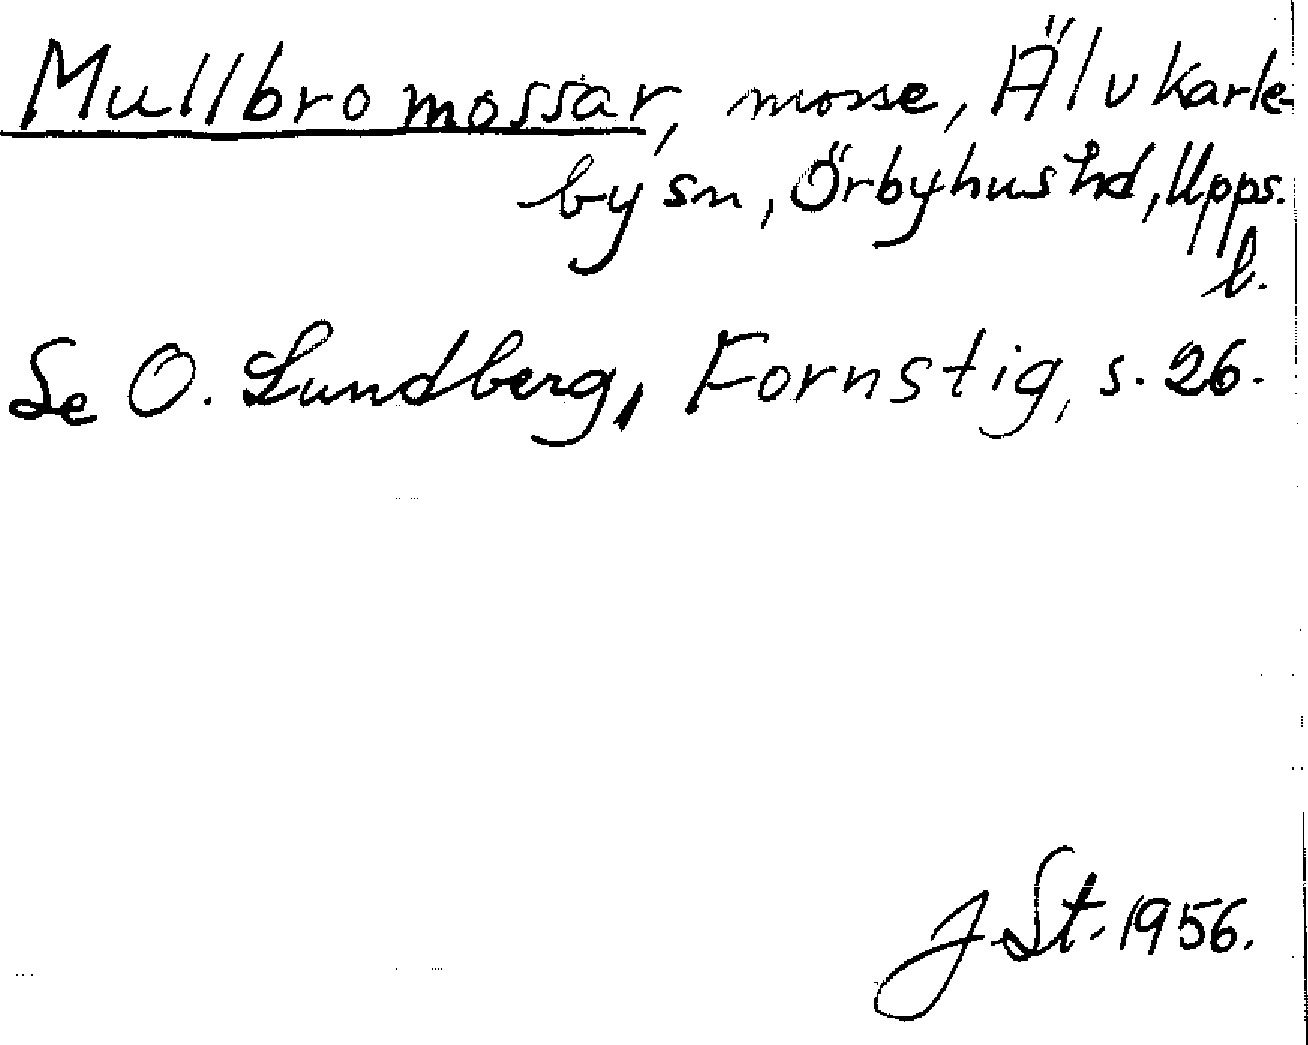 Mullbromossar, mosse, Älvkarle-
by sn, Örbyhus hd, Upps.
l.
Se O. Lundberg, Fornstig, s. 26.
J St. 1956.